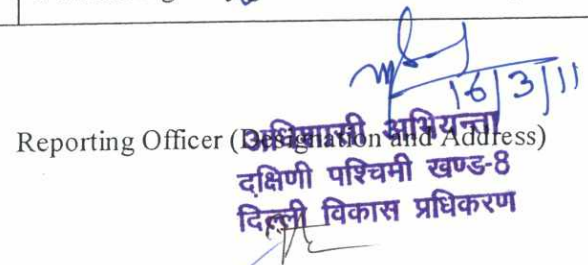 16/3/11
Reporting Officer (Designation and Address)
अधिशासी अभियन्ता
दक्षिणी पश्चिमी खण्ड-8
दिल्ली विकास प्रधिकरण